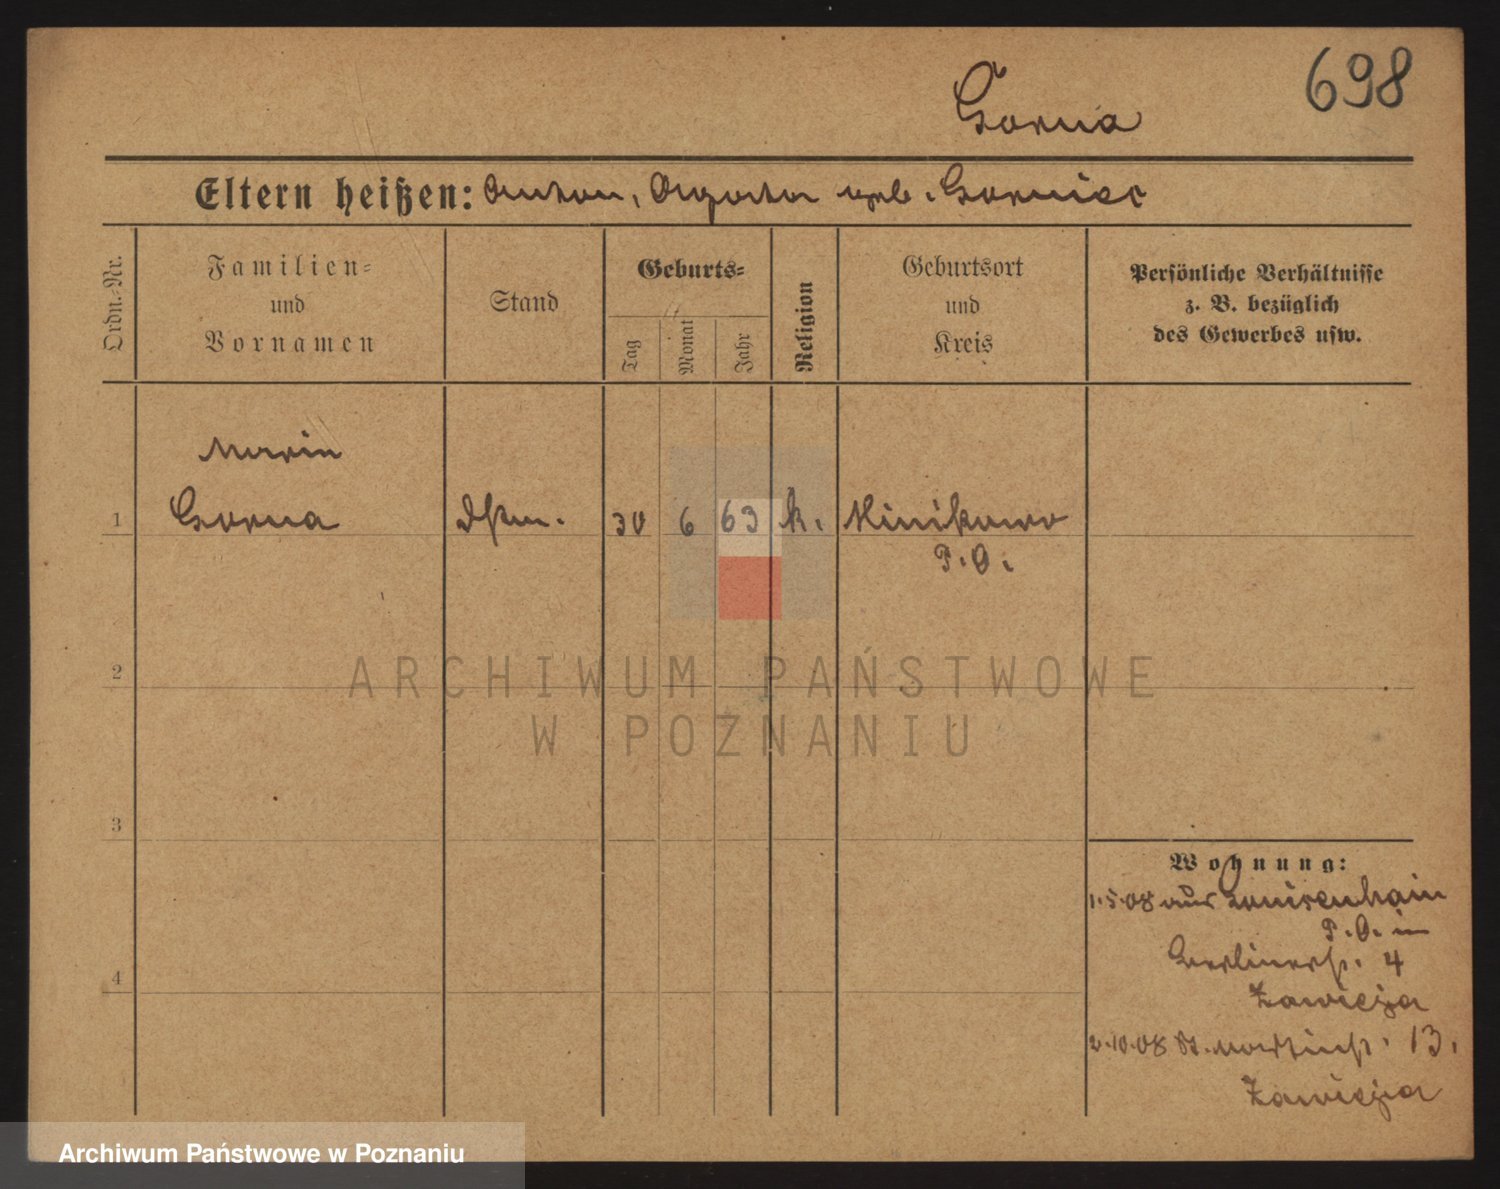 698
Gorna
Eltern heißen: Anton, Agatha geb. Gorniec
Ordn.-Nr.
Familien-
und
Vornamen
Stand
Geburts-
Tag
Monat
Jahr
Religion
Geburtsort
und
Kreis
Persönliche Verhältnisse
z. B. bezüglich
des Gewerbes usw.
Marie
1 Gorna Dstm. 30 6 63 k. Minikowo
P. O.
2
3
4
Wohnung:
1.5.08 aus Louisenhain
P. O. in
Berlinerstr. 4
Zawieja
2.10.08 St. Martinstr. 13.
Zawieja
ARCHIWUM PAŃSTWOWE
W POZNANIU
Archiwum Państwowe w Poznaniu